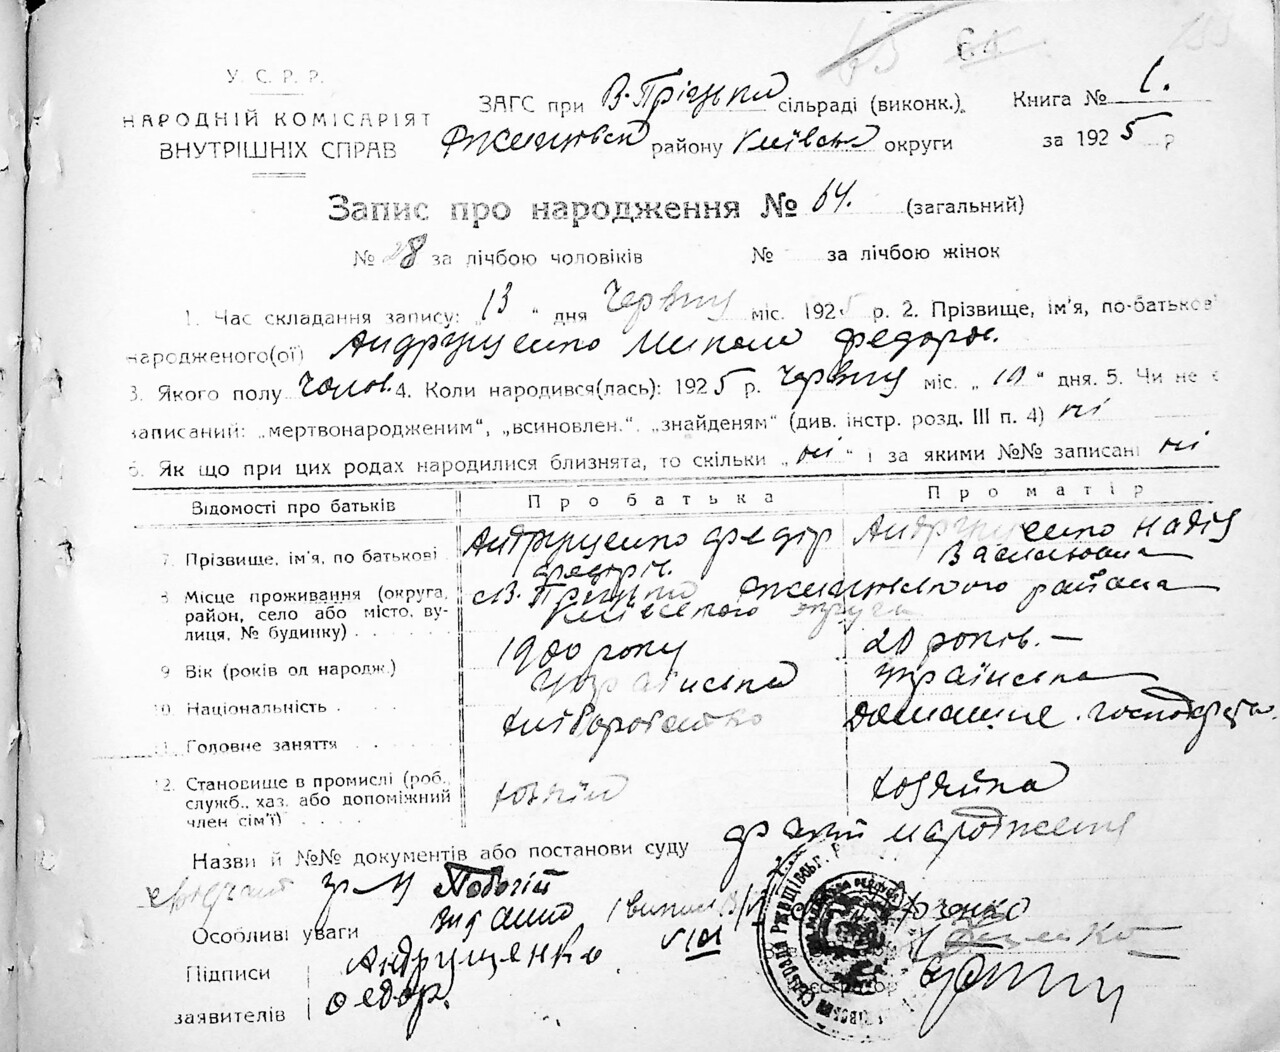 У. С. Р. Р.
НАРОДНІЙ КОМІСАРІЯТ
ВНУТРІШНІХ СПРАВ
ЗАГС при В-Пріцько сільраді (виконк.) Книга № 1.
Ржищівськ району Київськ округи за 1925 р
Запис про народження № 64. (загальний)
№ 28 за лічбою чоловіків № за лічбою жінок
1. Час складання запису: „13“ дня Червня міс. 1925 р. 2. Прізвище, ім'я, по-батькові
народженого(ої) Андрущенко Микола Федоров.
3. Якого полу Чолов. 4. Коли народився(лась): 1925 р. Червня міс. „10“ дня. 5. Чи не є
записаний: „мертвонародженим“, „всиновлен.“, „знайденям“ (див. інстр. розд. III п. 4) ні
6. Як що при цих родах народилися близнята, то скільки „ні“ і за якими №№ записані ні
Відомості про батьків Про батька Про матір
7. Прізвище, ім'я, по батькові Андрущенко Федір Федоров. Андрущенко Надія Василівна
8 Місце проживання (округа, район, село або місто, вулиця, № будинку) с. В. Пріцько Ржищівського района Київського округа
9 Вік (років од народж.) 1900 року 20 років. —
10. Національність Українська Українська
11. Головне заняття хліборобство Домашнє господарство.
12. Становище в промислі (роб., служб., хаз. або допоміжний член сім'ї) хозяїн хозяйка
Назви й №№ документів або постанови суду факт народження
Особливі уваги видано
Підписи заявителів Андрущенко Федор.